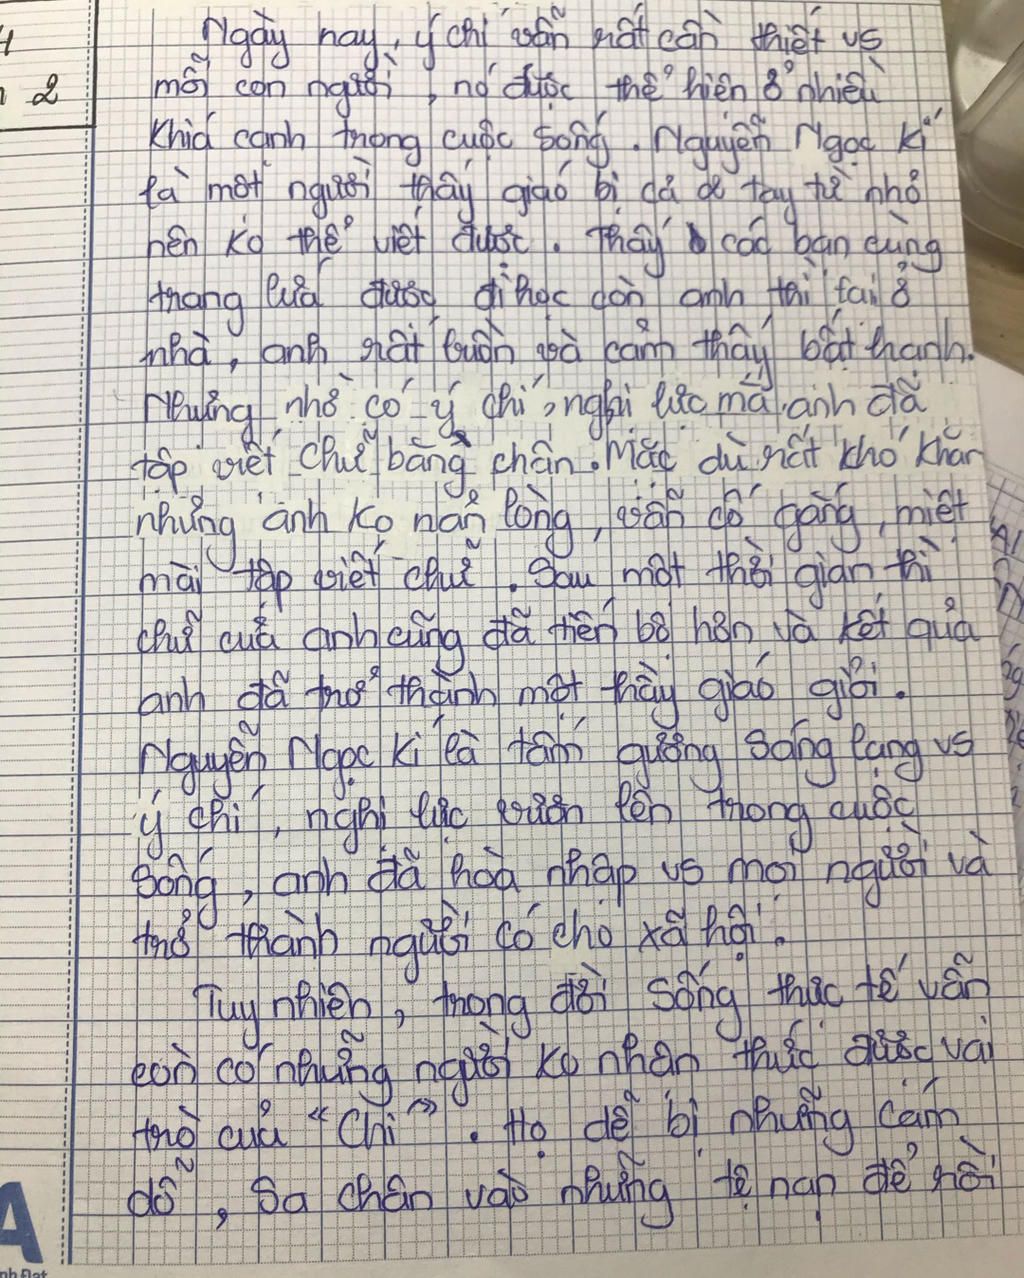 Ngày nay, ý chí vẫn rất cần thiết vs
mỗi con người, nó được thể hiện ở nhiều
khía cạnh trong cuộc sống. Nguyễn Ngọc Kí
là một người thầy giáo bị cả tay từ nhỏ
nên ko thể viết được. Thấy các bạn cùng
trang lứa được đi học còn anh thì lại ở
nhà, anh rất buồn và cảm thấy bất hạnh.
Nhưng nhờ có ý chí, nghị lực mà anh đã
tập viết chữ bằng chân. Mặc dù rất khó khăn
nhưng anh ko nản lòng, vẫn cố gắng, miệt
mài tập viết chữ. Sau một thời gian thì
chữ của anh cũng đã tiến bộ hơn và kết quả
anh đã trở thành một thầy giáo giỏi.
Nguyễn Ngọc Kí là tấm gương sáng lạng vs
ý chí, nghị lực vươn lên trong cuộc
sống, anh đã hoà nhập vs mọi người và
trở thành người có cho xã hội.
Tuy nhiên, trong đời sống thực tế vẫn
còn có những người ko nhận thức được vai
trò của "Chí". Họ dễ bị những cám
dỗ, sa chân vào những tệ nạn để rồi
2
A